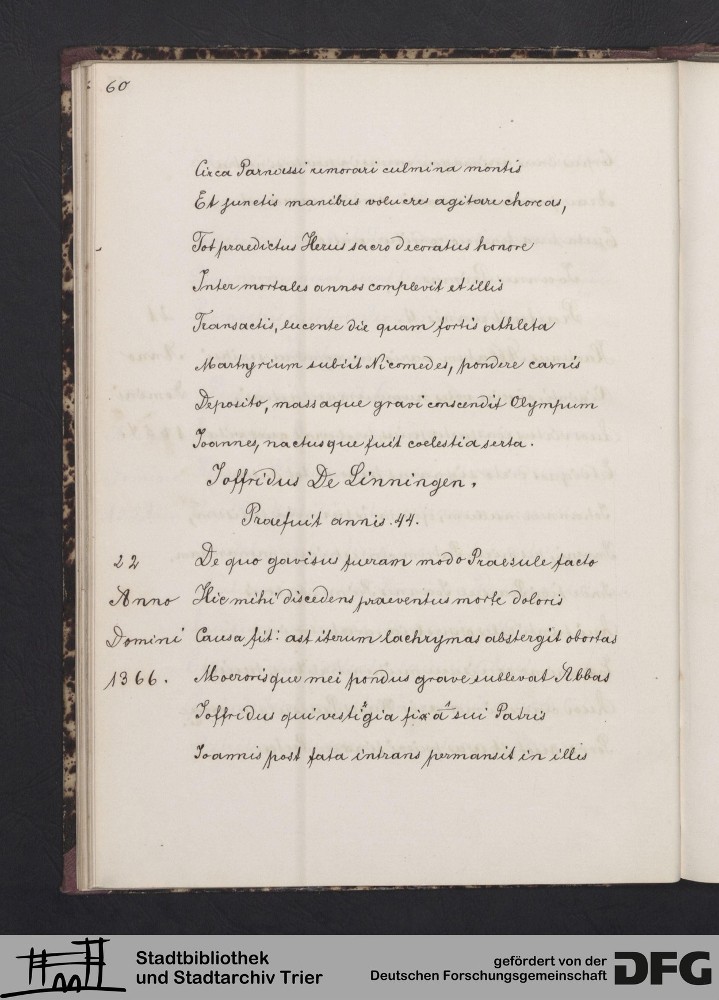 60
Circa Parnassi remorari culmina montis
Et junctis manibus volucres agitare choreas,
Tot praedictus Herus sacro decoratus honore
Inter mortales annos complevit et illis
Transactis, lucente die quam fortis athleta
Martyrium subiit Nicomedes, pondere carnis
Deposito, massaque gravi conscendit Olympum
Joannes, nactusque fuit coelestia serta.
Joffridus De Linningen.
Praefuit annis. 44.
22 De quo gavisus fueram modo Praesule facto
Anno Hic mihi discedens praeventus morte doloris
Domini Causa fit: ast iterum lachrymas abstergit obortas
1366. Moerorisque mei pondus grave sublevat Abbas
Joffridus qui vestigia fixa sui Patris
Joannis post fata intrans permansit in illis
Stadtbibliothek
und Stadtarchiv Trier
gefördert von der
Deutschen Forschungsgemeinschaft
DFG